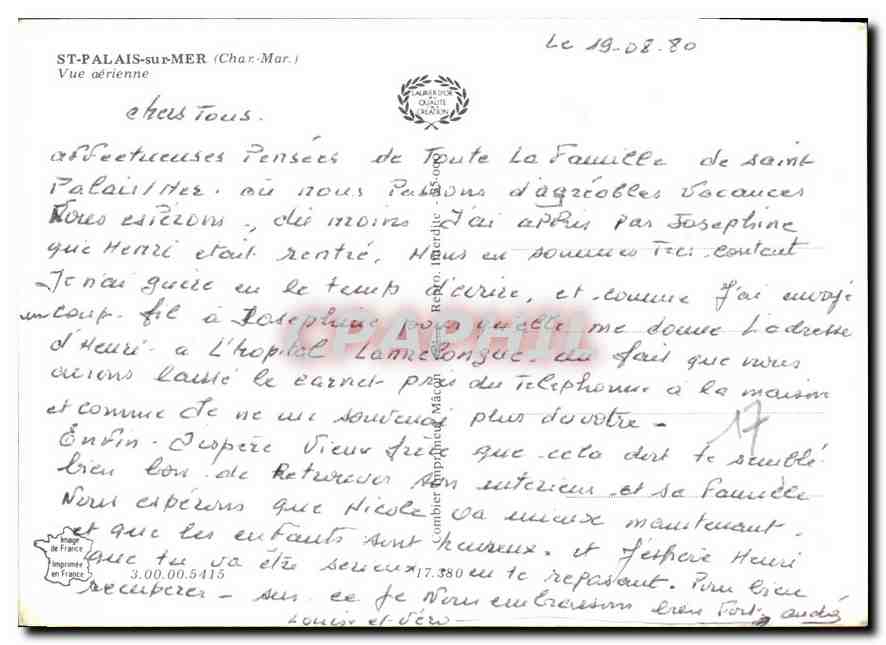 Le 19-08-80
ST-PALAIS-sur-MER (Char.-Mar.)
Vue aérienne
LAURIER D'OR
DE
QUALITÉ
DE
CRÉATION
Chers Tous.
affectueuses Pensées de Toute La Famille de saint
Palais/Mer. où nous Passons d'agréables Vacances
Nous espérons, du moins J'ai appris par Josephine
que Henri etait rentré, Nous en sommes Très content
Je n'ai guère eu le temps d'ecrire, et comme J'ai envoyé
un coup fil à Josephine pour quelle me donne L'adresse
d'Henri a L'hopital Lannelongue du fait que nous
avions laissé le carnet près du Téléphone à la maison
et comme Je ne me souvenai plus du votre -
17
Enfin. J'espère Vieux frère que cela doit te semblé
bien bon de Retrouver son interieur et sa Famille
Nous espérons que Nicole va mieux maintenant.
et que les enfants sont heureux. et J'espère Henri
que tu va être serieux. en te reposant. Pour bien
recuperer - sur ce Je Nous embrassons bien Fort, andré
Louise et Véro
Image
de France
Imprimée
en France
3.00.00.5415
17.380
Combier Imprimeur Mâcon
Repro. Interdite
CPAPHIL